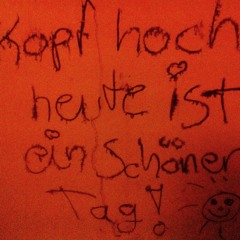 Kopf hoch
heute ist
ein schöner
Tag!